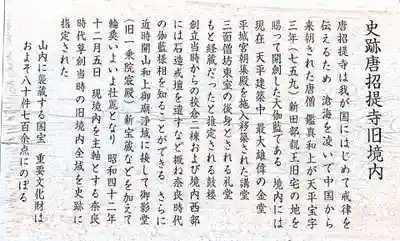 史跡唐招提寺旧境内
唐招提寺は我が国にはじめて戒律を
伝えるため 滄海を凌いで中国から
来朝された唐僧 鑑真和上が天平宝字
三年(七五九)新田部親王旧宅の地を
賜って開創した大伽藍である 境内には
現在 天平建築中 最大雄偉の金堂
平城宮朝集殿を施入移築された講堂
三面僧坊東室の後身とされる礼堂
もと経蔵だったと推定される鼓楼
創立当時からの校倉二棟および境内西部
には石造戒壇を遺すなど概ね奈良時代
の伽藍様相を知ることができる さらに
近時開山和上御廟浄域に接して御影堂
(旧一乗院宸殿) 新宝蔵などを加えて
輪奐いよいよ壮麗となり 昭和四十二年
十二月五日 現境内を主軸とする奈良
時代草創当時の旧境内全域を史跡に
指定された
山内に襲蔵する国宝 重要文化財は
およそ八十件七百余点にのぼる